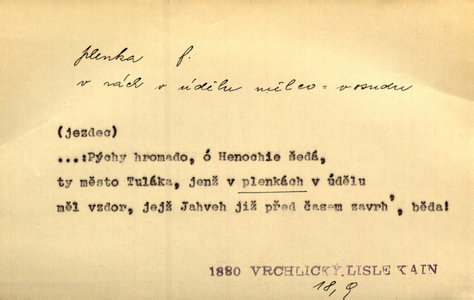 plenka f.
v nách v údělu míti co = v osudu
(jezdec)
...:Pýchy hromado, ó Henochie šedá,
ty město Tuláka, jenž v plenkách v údělu
měl vzdor, jejž Jahveh již před časem zavrh', běda!
1880 VRCHLICKÝ.LISLE KAIN
18, 9